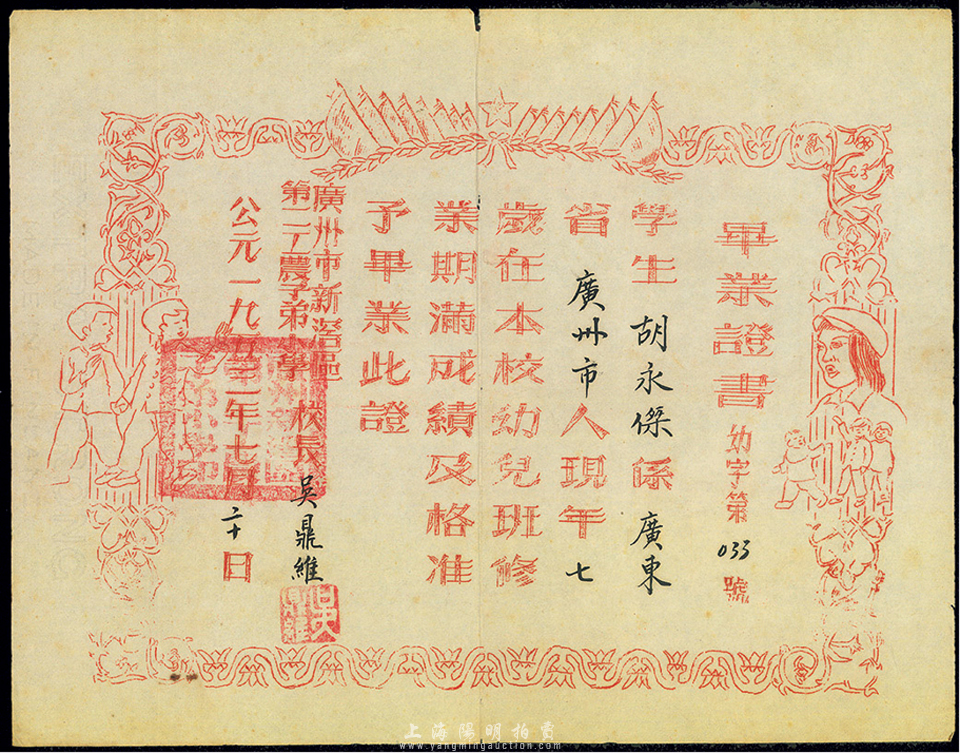 畢業證書
幼字第033號
學生胡永傑係廣東
省廣州市人現年七
歲在本校幼兒班修
業期滿成績及格准
予畢業此證
廣州市新滘區
第二丁農子弟小學
校長吳鼎維
公元一九五三年七月二十日
上海陽明拍賣
www.yangmingauction.com